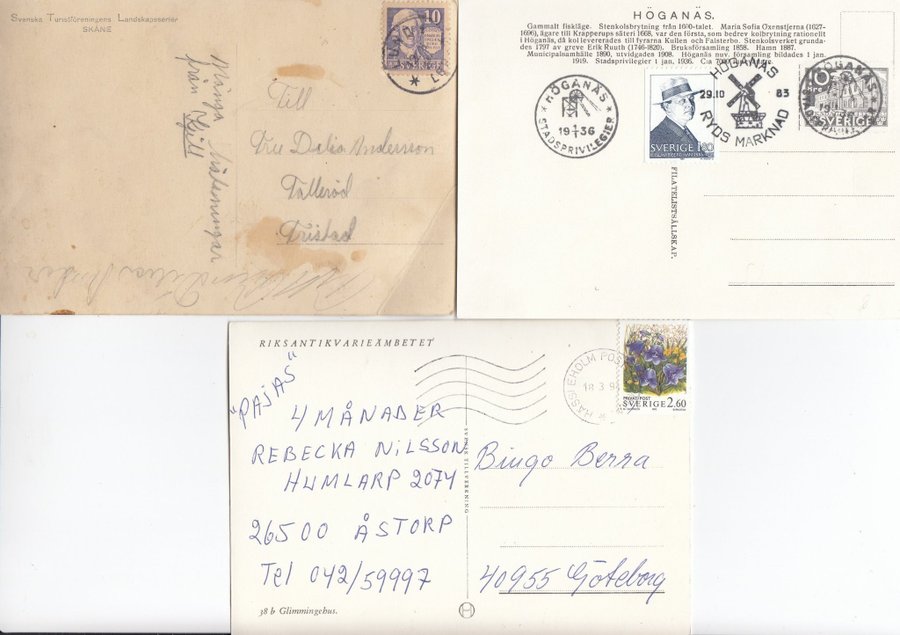 Svenska Turistföreningens Landskapsserier
SKÅNE
10
SVERIGE
Till
Delia Andersson
Tristad
Många hälsningar
från Kjell
HÖGANÄS.
Gammalt fiskläge. Stenkolsbrytning från 1600-talet. Maria Sofia Oxenstjerna (1627-
1696), ägare till Krapperups säteri 1668, var den första, som bedrev kolbrytning rationellt
i Höganäs, då kol levererades till fyrarna Kullen och Falsterbo. Stenkolsverket grunda-
des 1797 av greve Erik Ruuth (1746-1820). Bruksförsamling 1858. Hamn 1887.
Municipalsamhälle 1890, utvidgades 1908. Höganäs nuv. församling bildades 1 jan.
1919. Stadsprivilegier 1 jan. 1936.
HÖGANÄS
19 1/1 36
STADSPRIVILEGIER
SVERIGE 1.80
HÖGANÄS
29.10 83
RYDS MARKNAD
10
SVERIGE
HÖGANÄS
FILATELISTSÄLLSKAP.
RIKSANTIKVARIEÄMBETET
"PAJAS"
4 MÅNADER
REBECKA NILSSON
HUMLARP 2074
26500 ÅSTORP
Tel 042/59997
38 b Glimmingehus.
SVENSK TILLVERKNING
HÄSSLEHOLM POST
18 3 9
PRIVATPOST
SVERIGE 2.60
Bingo Berra
40955 Göteborg